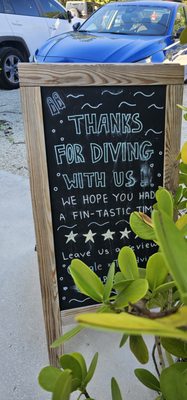 THANKS
FOR DIVING
WITH US
WE HOPE YOU HAD
A FIN-TASTIC
Leave us